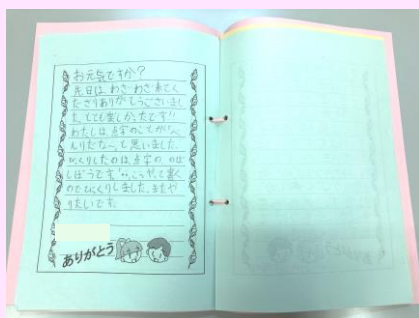 お元気ですか?
先日は、わざわざ来てく
ださりありがとうございまし
た。とても楽しかったです!!
わたしは、点字のことが「べ
んりだな〜。」と思いました。
びっくりしたのは、点字の、のば
しぼうです。
書く
のでびっくりしました。またや
りたいです。
ありがとう